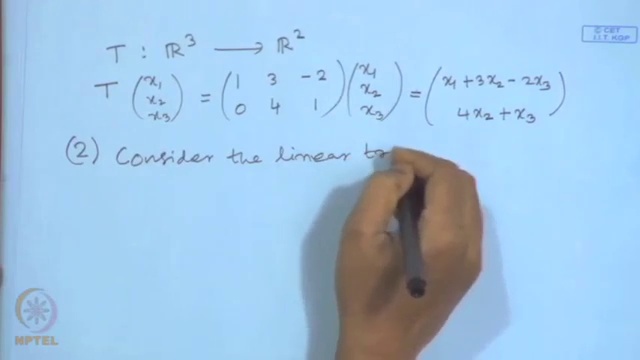 © CET
I.I.T. KGP
T : ℝ³ ⟶ ℝ²
T (x₁ x₂ x₃) = (1 3 -2 0 4 1) (x₁ x₂ x₃) = (x₁ + 3x₂ - 2x₃ 4x₂ + x₃)
(2) Consider the linear
NPTEL